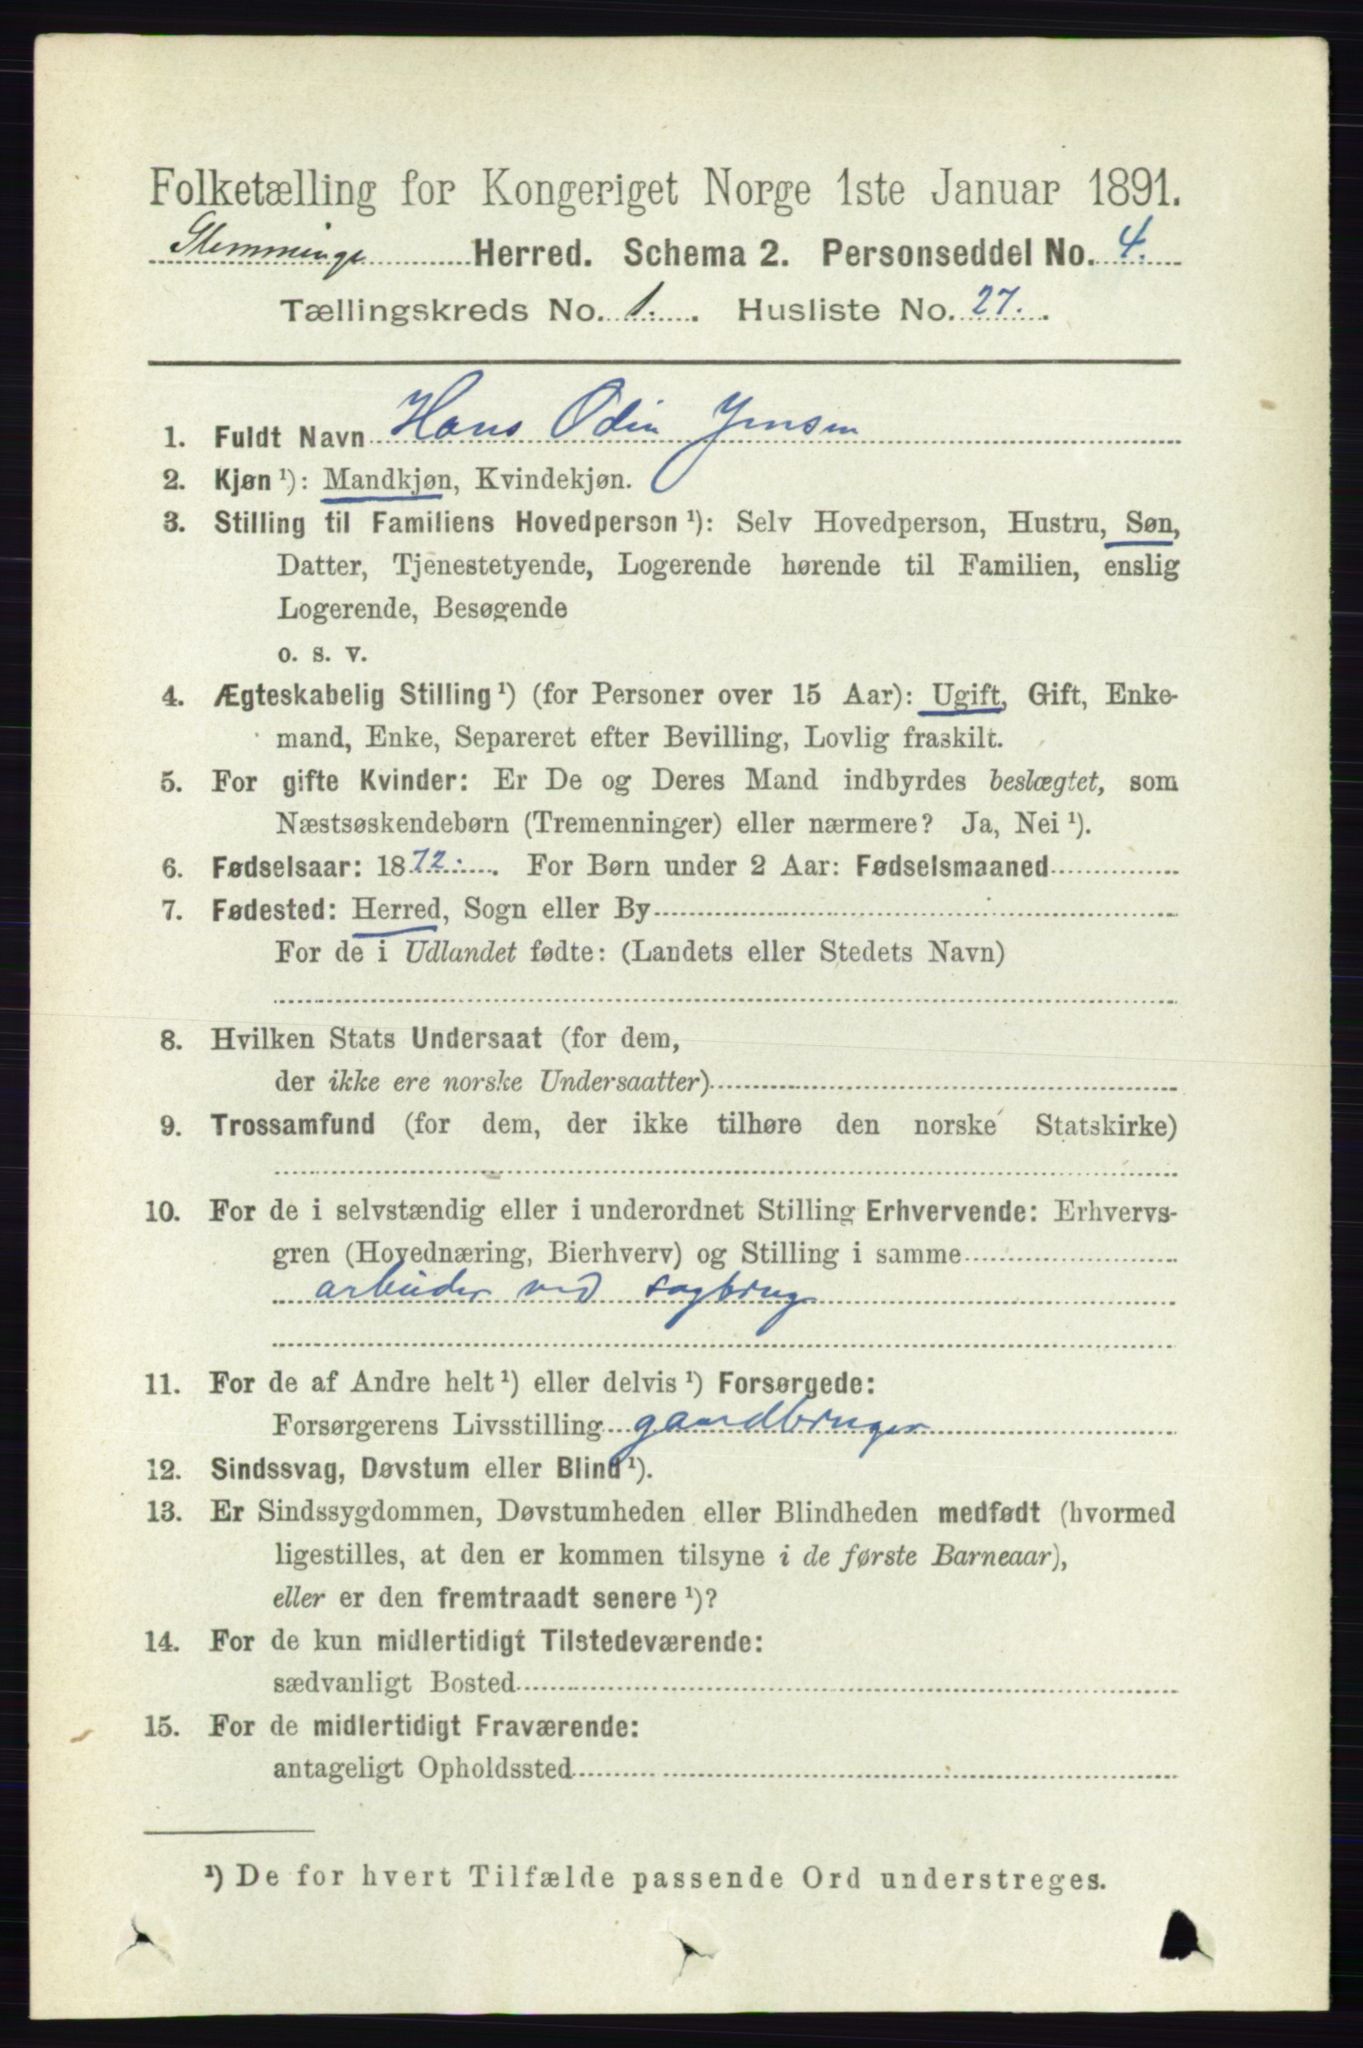 Folketælling for Kongeriget Norge 1ste Januar 1891.
Slemminge Herred. Schema 2. Personseddel No. 4.
Tællingskreds No. 1. Husliste No. 27.
1. Fuldt Navn Hans Odin Jensen
2. Kjøn ¹): Mandkjøn, Kvindekjøn.
3. Stilling til Familiens Hovedperson ¹): Selv Hovedperson, Hustru, Søn,
Datter, Tjenestetyende, Logerende hørende til Familien, enslig
Logerende, Besøgende
o. s. v.
4. Ægteskabelig Stilling ¹) (for Personer over 15 Aar): Ugift, Gift, Enke-
mand, Enke, Separeret efter Bevilling, Lovlig fraskilt.
5. For gifte Kvinder: Er De og Deres Mand indbyrdes beslægtet, som
Næstsøskendebørn (Tremenninger) eller nærmere? Ja, Nei ¹).
6. Fødselsaar: 1872. For Børn under 2 Aar: Fødselsmaaned
7. Fødested: Herred, Sogn eller By
For de i Udlandet fødte: (Landets eller Stedets Navn)
8. Hvilken Stats Undersaat (for dem,
der ikke ere norske Undersaatter)
9. Trossamfund (for dem, der ikke tilhøre den norske Statskirke)
10. For de i selvstændig eller i underordnet Stilling Erhvervende: Erhvervs-
gren (Hovednæring, Bierhverv) og Stilling i samme
arbeider ved sagbrug
11. For de af Andre helt ¹) eller delvis ¹) Forsørgede:
Forsørgerens Livsstilling gaardbruger
12. Sindssvag, Døvstum eller Blind ¹).
13. Er Sindssygdommen, Døvstumheden eller Blindheden medfødt (hvormed
ligestilles, at den er kommen tilsyne i de første Barneaar),
eller er den fremtraadt senere ¹)?
14. For de kun midlertidigt Tilstedeværende:
sædvanligt Bosted
15. For de midlertidigt Fraværende:
antageligt Opholdssted
¹) De for hvert Tilfælde passende Ord understreges.